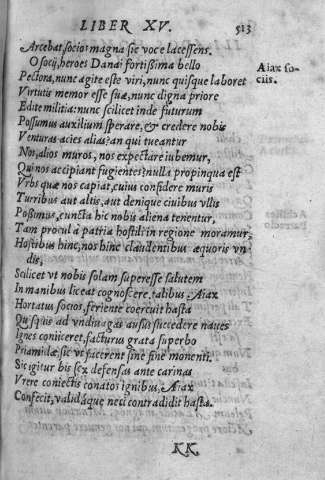 LIBER XV. 513
Arcebat, socios magna sic voce lacessens.
O socij, heroes Danai fortissima bello
Aiax so-
ciis.
Pectora, nunc agite este viri, nunc quisque laboret
Virtutis memor esse suæ, nunc digna priore
Edite militia: nunc scilicet inde futurum
Possumus auxilium sperare, & credere nobis
Venturas acies alias? an qui tueantur
Nos, alios muros, nos expectare iubemur,
Qui nos accipiant fugientes? nulla propinqua est
Vrbs quæ nos capiat, cuius confidere muris
Turribus aut altis, aut denique ciuibus vllis
Possimus, cuncta hic nobis aliena tenentur,
Tam procul a patria hostili in regione moramur,
Hostibus hinc, nos hinc claudentibus æquoris vn-
dis,
Scilicet vt nobis solam superesse salutem
In manibus liceat cognoscere. talibus Aiax
Hortatus socios, feriente coercuit hasta
Quisquis ad vndiuagas ausus succedere naues
Ignes conijceret, facturus grata superbo
Priamidæ, sic vt facerent sine fine monenti.
Sic igitur bis sex defensas ante carinas
Vrere coniectis conatos ignibus, Aiax
Confecit, validáque neci contradidit hasta.
KK